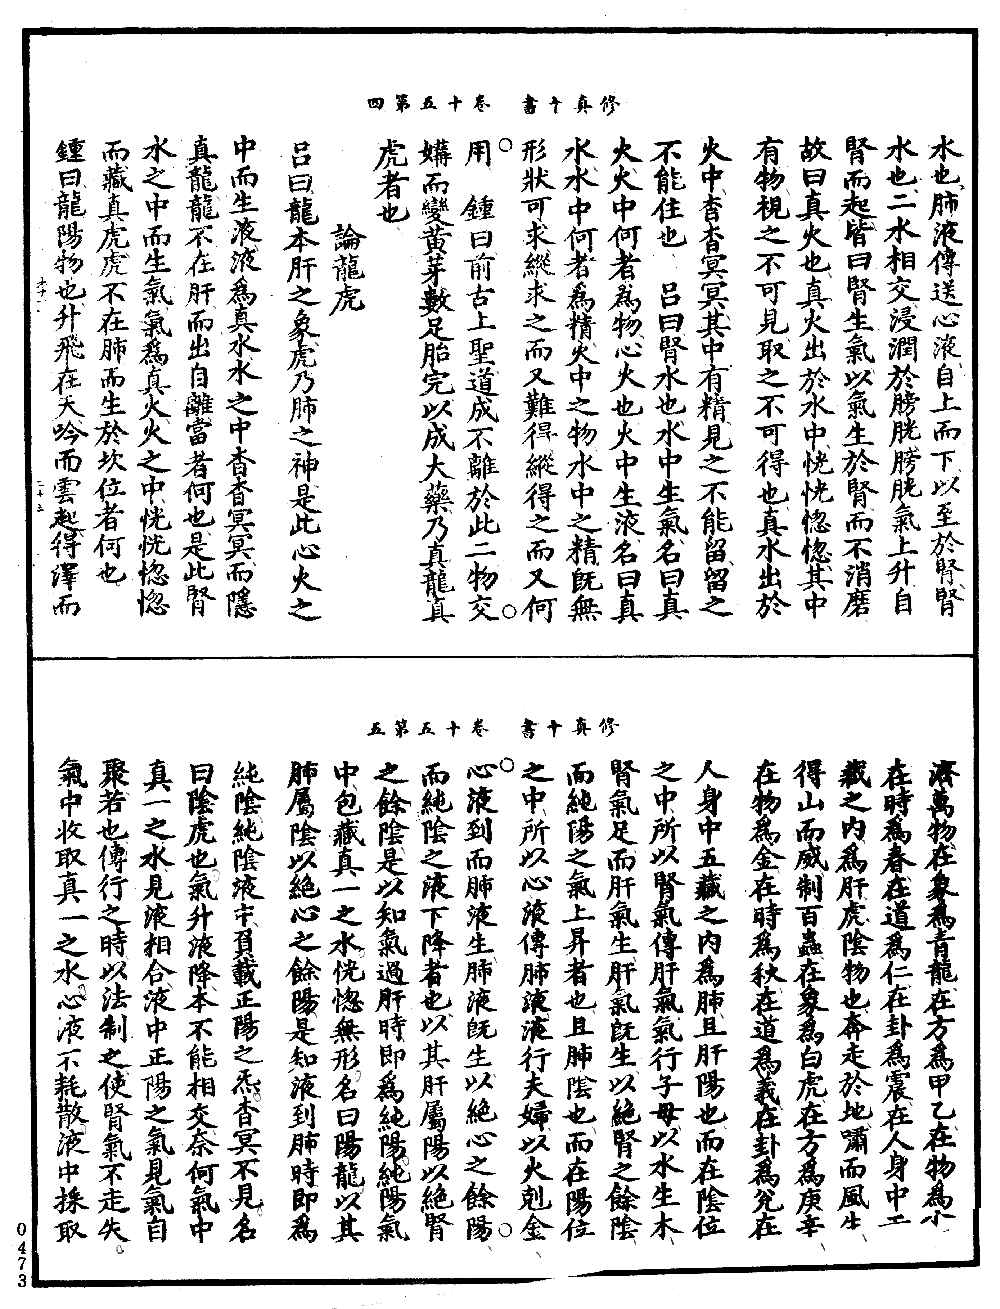 修真十書　卷十五第四
水也肺液傳送心液自上而下以至於腎腎
水也二水相交浸潤於膀胱膀胱氣上升自
腎而起皆曰腎生氣以氣生於腎而不消磨
故曰真火也真火出於水中恍恍惚惚其中
有物視之不可見取之不可得也真水出於
火中杳杳冥冥其中有精見之不能留留之
不能住也　呂曰腎水也水中生氣名曰真
火火中何者為物心火也火中生液名曰真
水水中何者為精火中之物水中之精既無
形狀可求縱求之而又難得縱得之而又何
用　鍾曰前古上聖道成不離於此二物交
媾而變黃芽數足胎完以成大藥乃真龍真
虎者也
論龍虎
呂曰龍本肝之象虎乃肺之神是此心火之
中而生液液為真水水之中杳杳冥冥而隱
真龍龍不在肝而出自離宮者何也是此腎
水之中而生氣氣為真火火之中恍恍惚惚
而藏真虎虎不在肺而生於坎位者何也
鍾曰龍陽物也升飛在天吟而雲起得澤而
修真十書　卷十五第五
濟萬物在象為青龍在方為甲乙在物為木
在時為春在道為仁在卦為震在人身中五
藏之內為肝虎陰物也奔走於地嘯而風生
得山而威制百蟲在象為白虎在方為庚辛
在物為金在時為秋在道為義在卦為兌在
人身中五藏之內為肺且肝陽也而在陰位
之中所以腎氣傳肝氣氣行子母以水生木
腎氣足而肝氣生肝氣既生以絕腎之餘陰
而純陽之氣上昇者也且肺陰也而在陽位
之中所以心液傳肺液液行夫婦以火剋金
心液到而肺液生肺液既生以絕心之餘陽
而純陰之液下降者也以其肝屬陽以絕腎
之餘陰是以知氣過肝時即為純陽純陽氣
中包藏真一之水恍惚無形名曰陽龍以其
肺屬陰以絕心之餘陽是知液到肺時即為
純陰純陰液中負載正陽之炁杳冥不見名
曰陰虎也氣升液降本不能相交奈何氣中
真一之水見液相合液中正陽之氣見氣自
聚若也傳行之時以法制之使腎氣不走失
氣中收取真一之水心液不耗散液中採取
0473